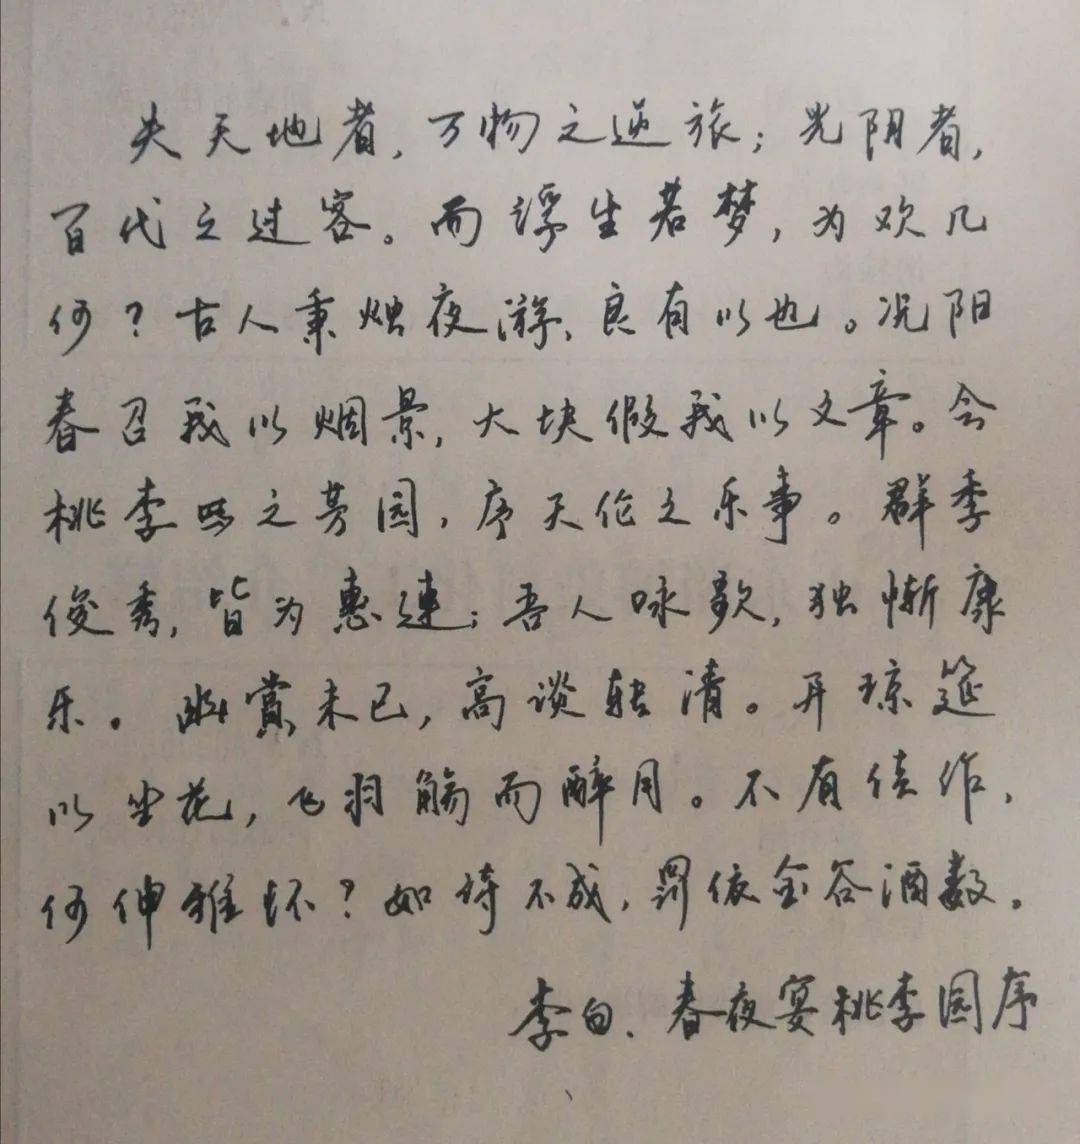 夫天地者，万物之逆旅；光阴者，
百代之过客。而浮生若梦，为欢几
何？古人秉烛夜游，良有以也。况阳
春召我以烟景，大块假我以文章。会
桃李园之芳园，序天伦之乐事。群季
俊秀，皆为惠连；吾人咏歌，独惭康
乐。幽赏未已，高谈转清。开琼筵
以坐花，飞羽觞而醉月。不有佳作，
何伸雅怀？如诗不成，罚依金谷酒数。
李白、春夜宴桃李园序